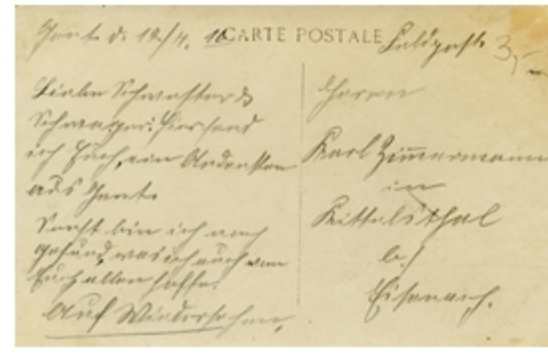 Gent d. 18/4. 16
CARTE POSTALE
Feldpost
3,-
Liebe Schwester &
Schwager! Hier send
ich Euch, ein Andenken
aus Gent.
Sonst bin ich noch
gesund, was ich auch von
Euch allen hoffe.
Auf Wiedersehen,
Herrn
Karl Zimmermann
in
Kittelsthal
b/
Eisenach.